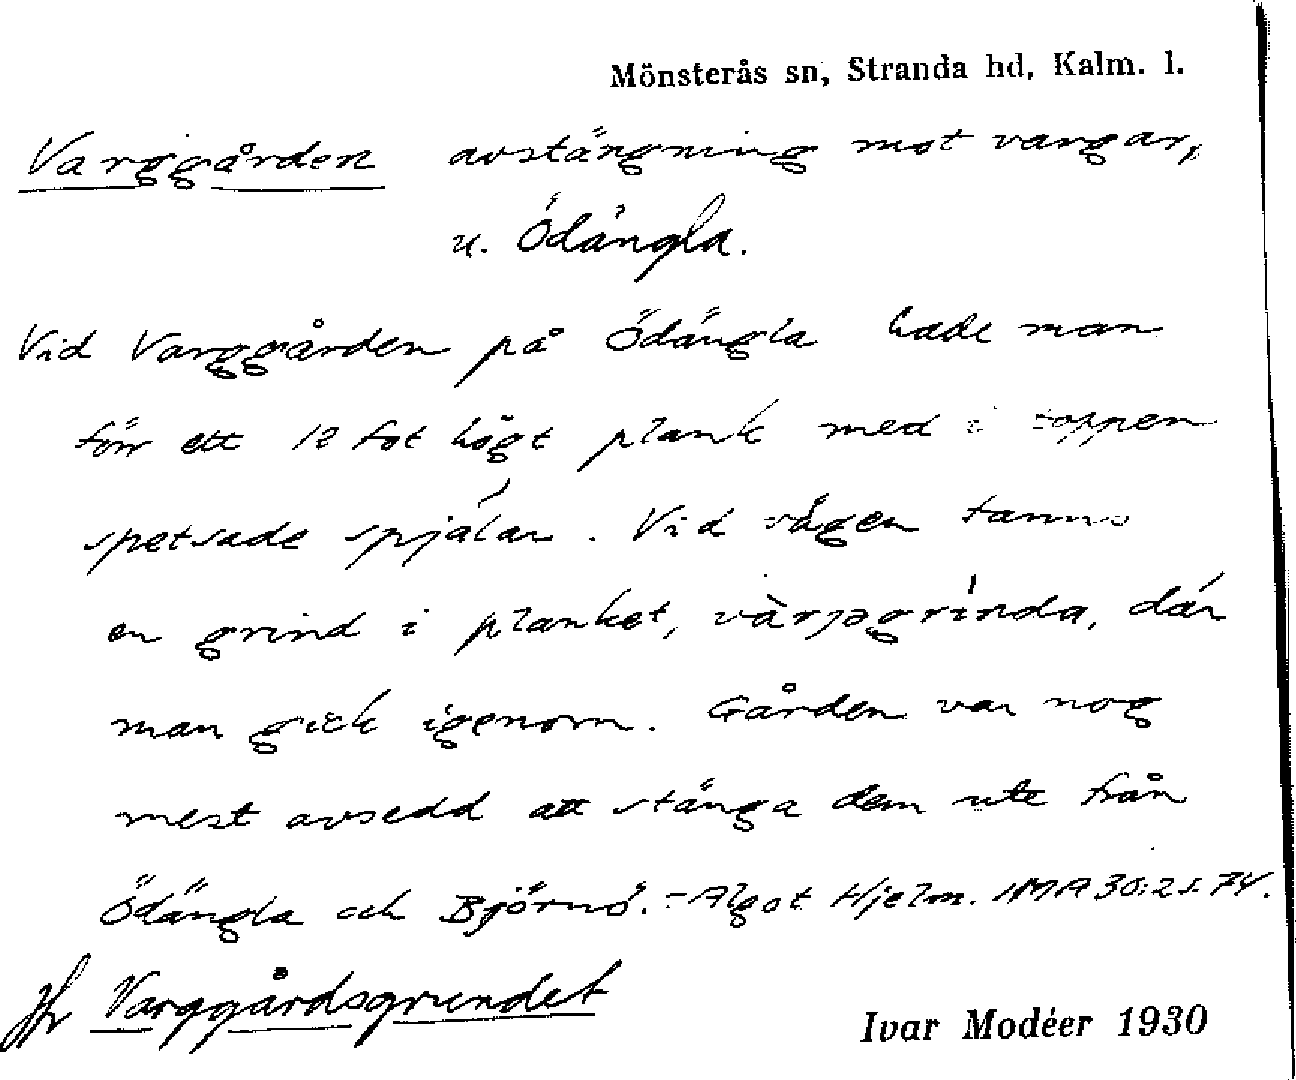 Mönsterås sn, Stranda hd, Kalm. l.
Varggården avstängning mot vargar,
u. Ödängla.
Vid Varggården på Ödängla hade man
förr ett 12 fot högt plank med i toppen
spetsade spjälar. Vid vägen fanns
en grind i planket, där
man gick igenom. Gården var nog
mest avsedd att stänga dem ute från
Ödängla och Björnö. - Algot Hjelm. IMA 30:2 s. 74.
Jfr Varggårdsgrundet
Ivar Modéer 1930